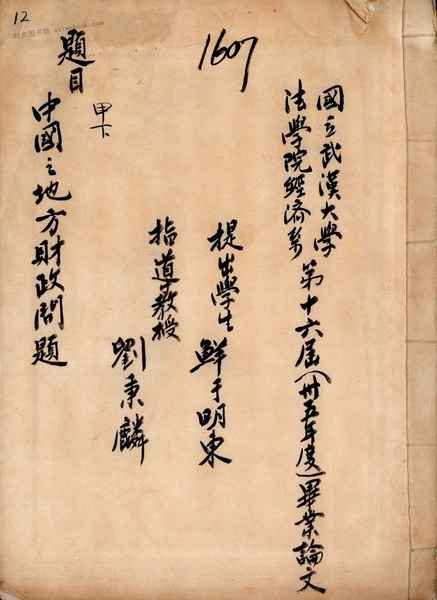 12
1607
國立武漢大學
法學院經濟系
第十六屆(卅五年度)畢業論文
提出學生 鮮于明東
指導教授 劉秉麟
題目
甲下
中國之地方財政問題